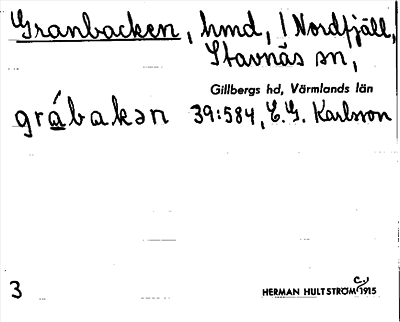 Granbacken, hmd, i Nordfjäll,
Stavnäs sn,
Gillbergs hd, Värmlands län
grábakən 39:584, E.G. Karlsson
3
HERMAN HULTSTRÖM c. 1915